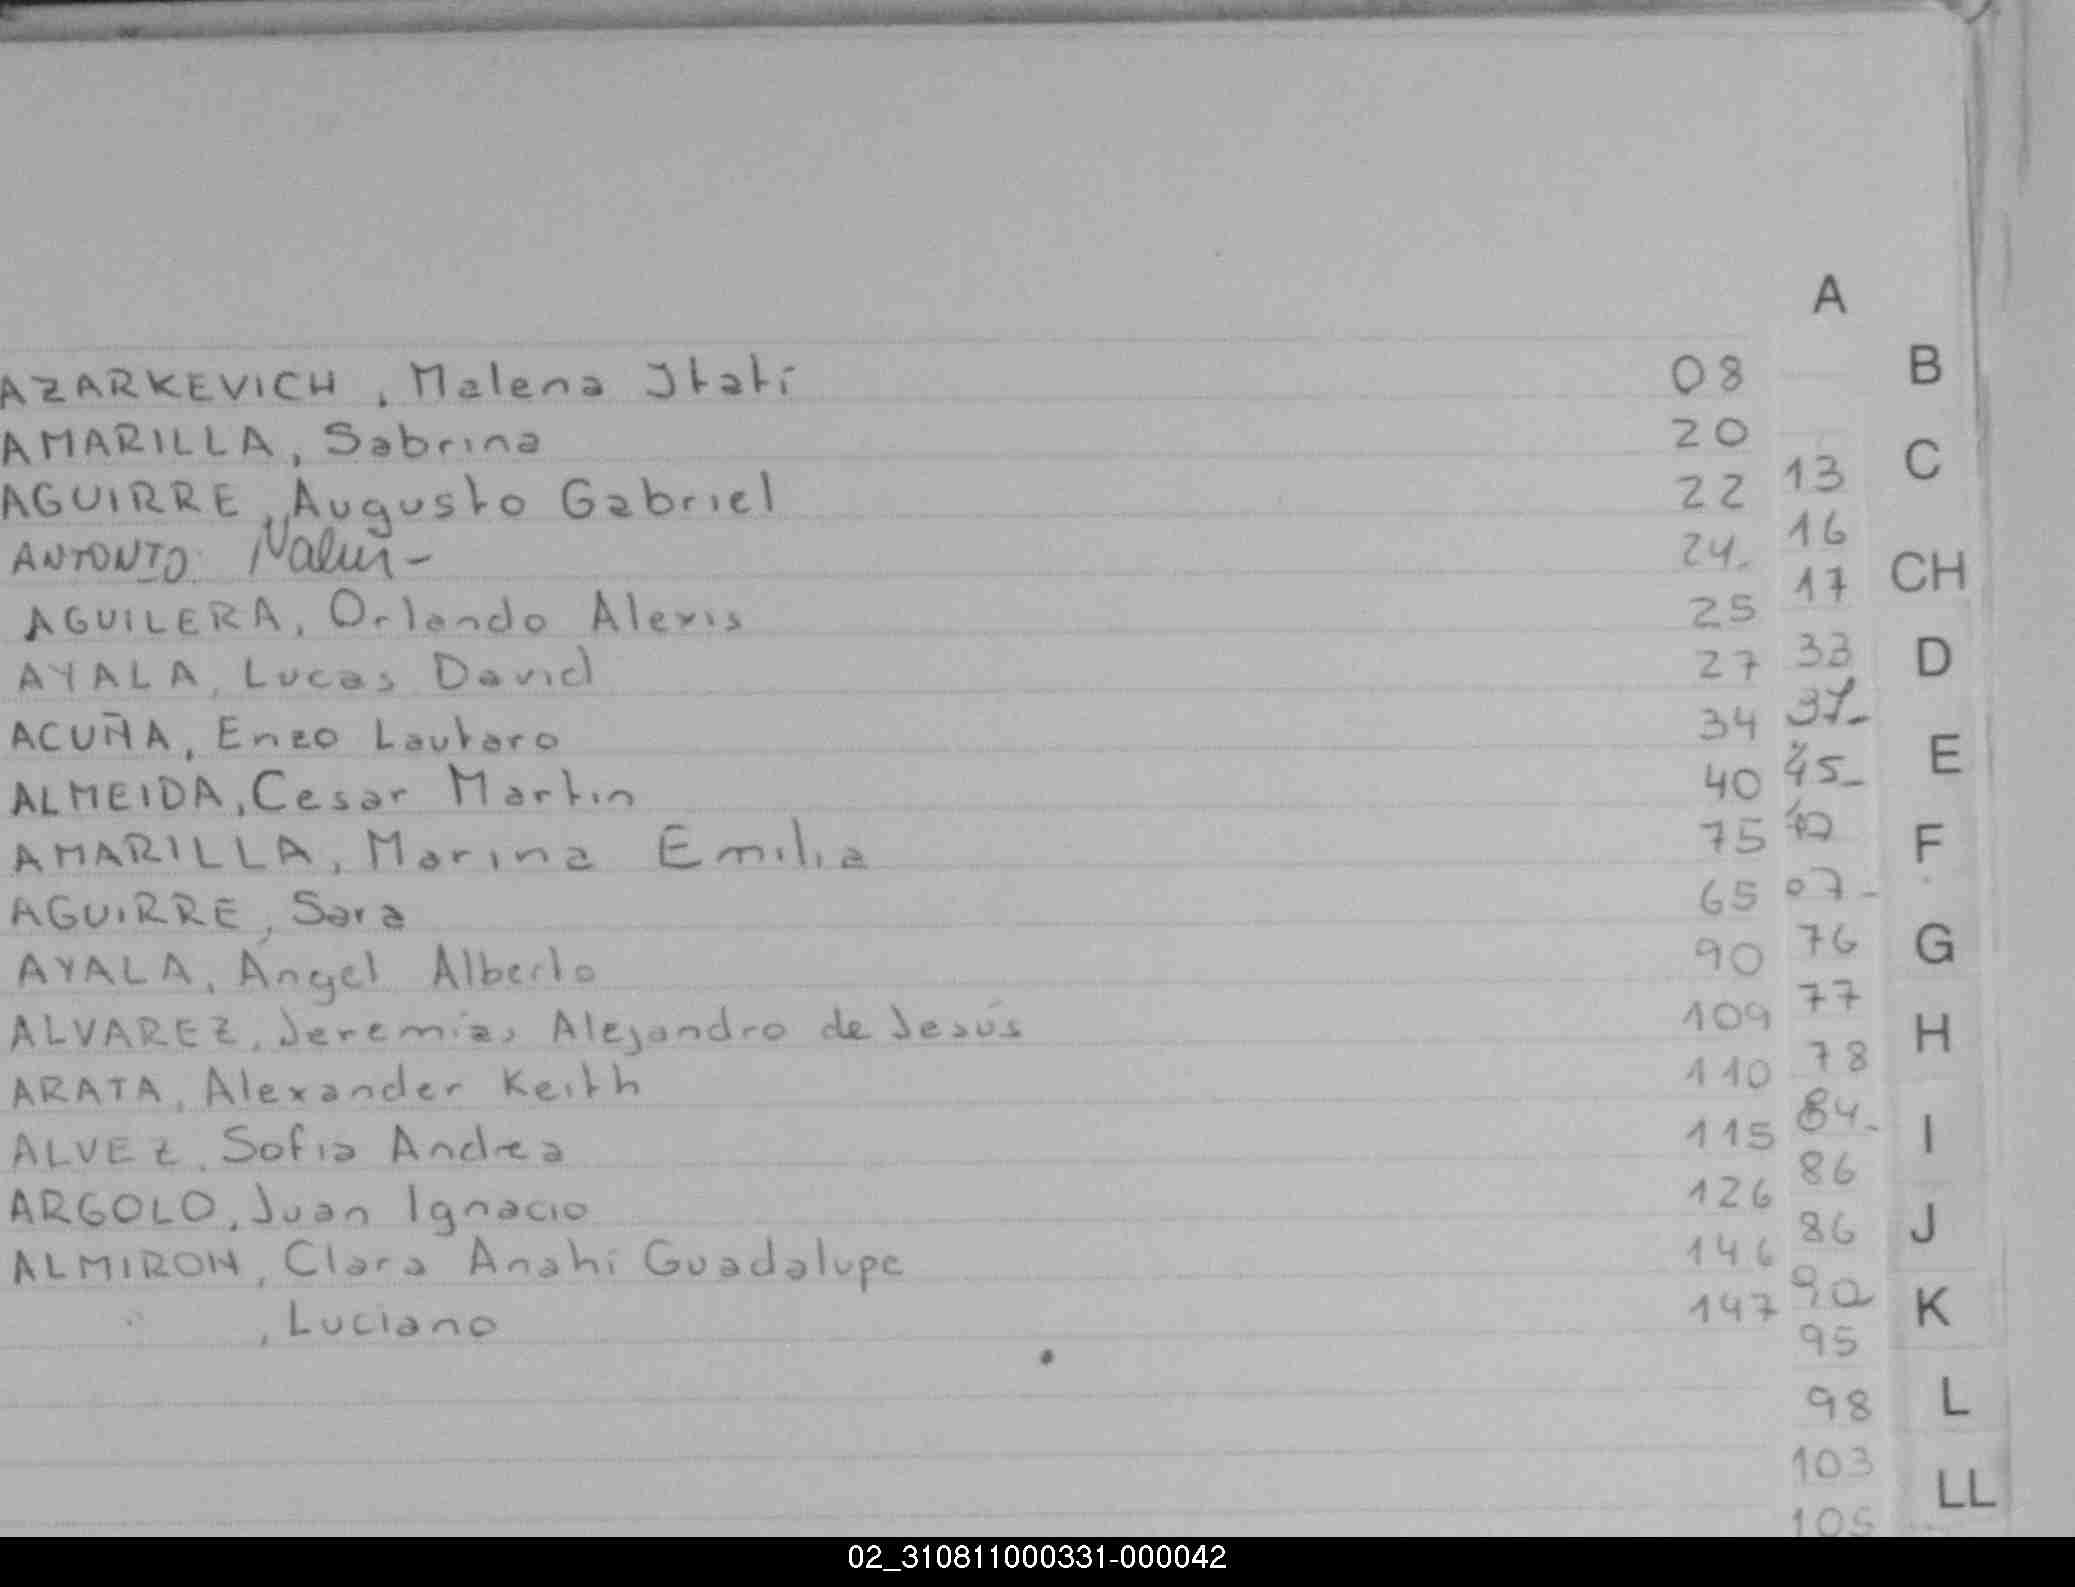 A
AZARKEVICH, Malena Itatí 08 B
AMARILLA, Sabrina 20
AGUIRRE, Augusto Gabriel 22 13 C
ANTONIO 24- 16
AGUILERA, Orlando Alexis 25 17 CH
AYALA, Lucas David 27 33 D
ACUÑA, Enzo Lautaro 34 37-
ALMEIDA, Cesar Martin 40 45- E
AMARILLA, Marina Emilia 75 F
AGUIRRE, Sara 65 07-
AYALA, Ángel Alberto 90 76 G
ALVAREZ, Jeremías Alejandro de Jesús 109 77 H
ARATA, Alexander Keith 110 78
ALVEZ, Sofia Andrea 115 84- I
ARGOLO, Juan Ignacio 126 86
ALMIRON, Clara Anahí Guadalupe 146 86 J
" , Luciano 147 90 K
95
98 L
103
LL
105
02_310811000331-000042